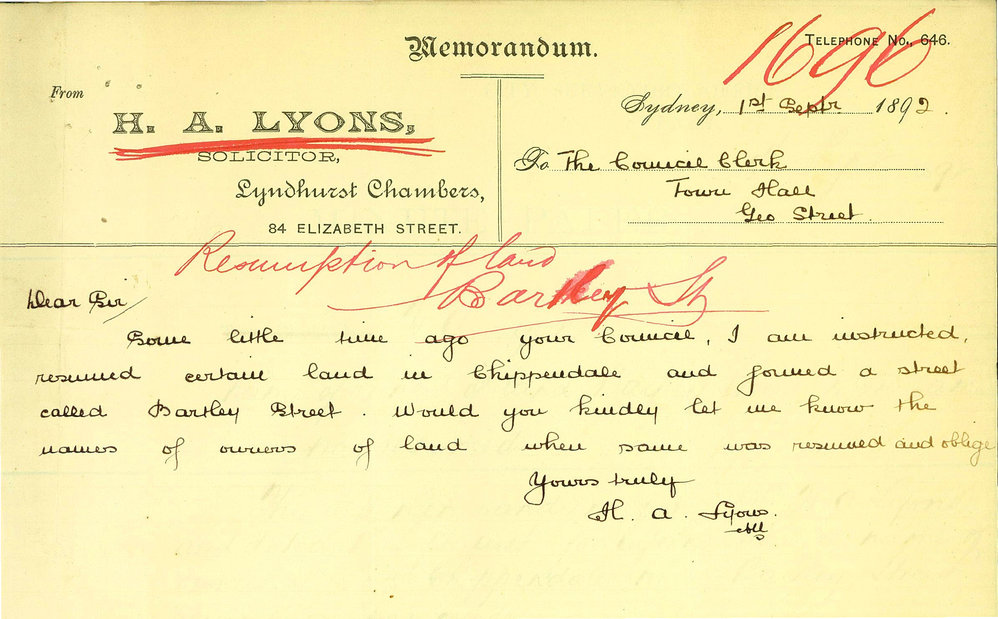 Memorandum.
TELEPHONE No., 646.
1696
From
H. A. LYONS,
SOLICITOR,
Lyndhurst Chambers,
84 ELIZABETH STREET.
Sydney, 1st Septr 1892.
To The Council Clerk
Town Hall
Geo Street.
Resumption of land
Bartley St
Dear Sir/
Some little time ago your Council, I am instructed,
resumed certain land in Chippendale and formed a street
called Bartley Street. Would you kindly let me know the
names of owners of land when same was resumed and oblige
Yours truly
H. A. Lyons.